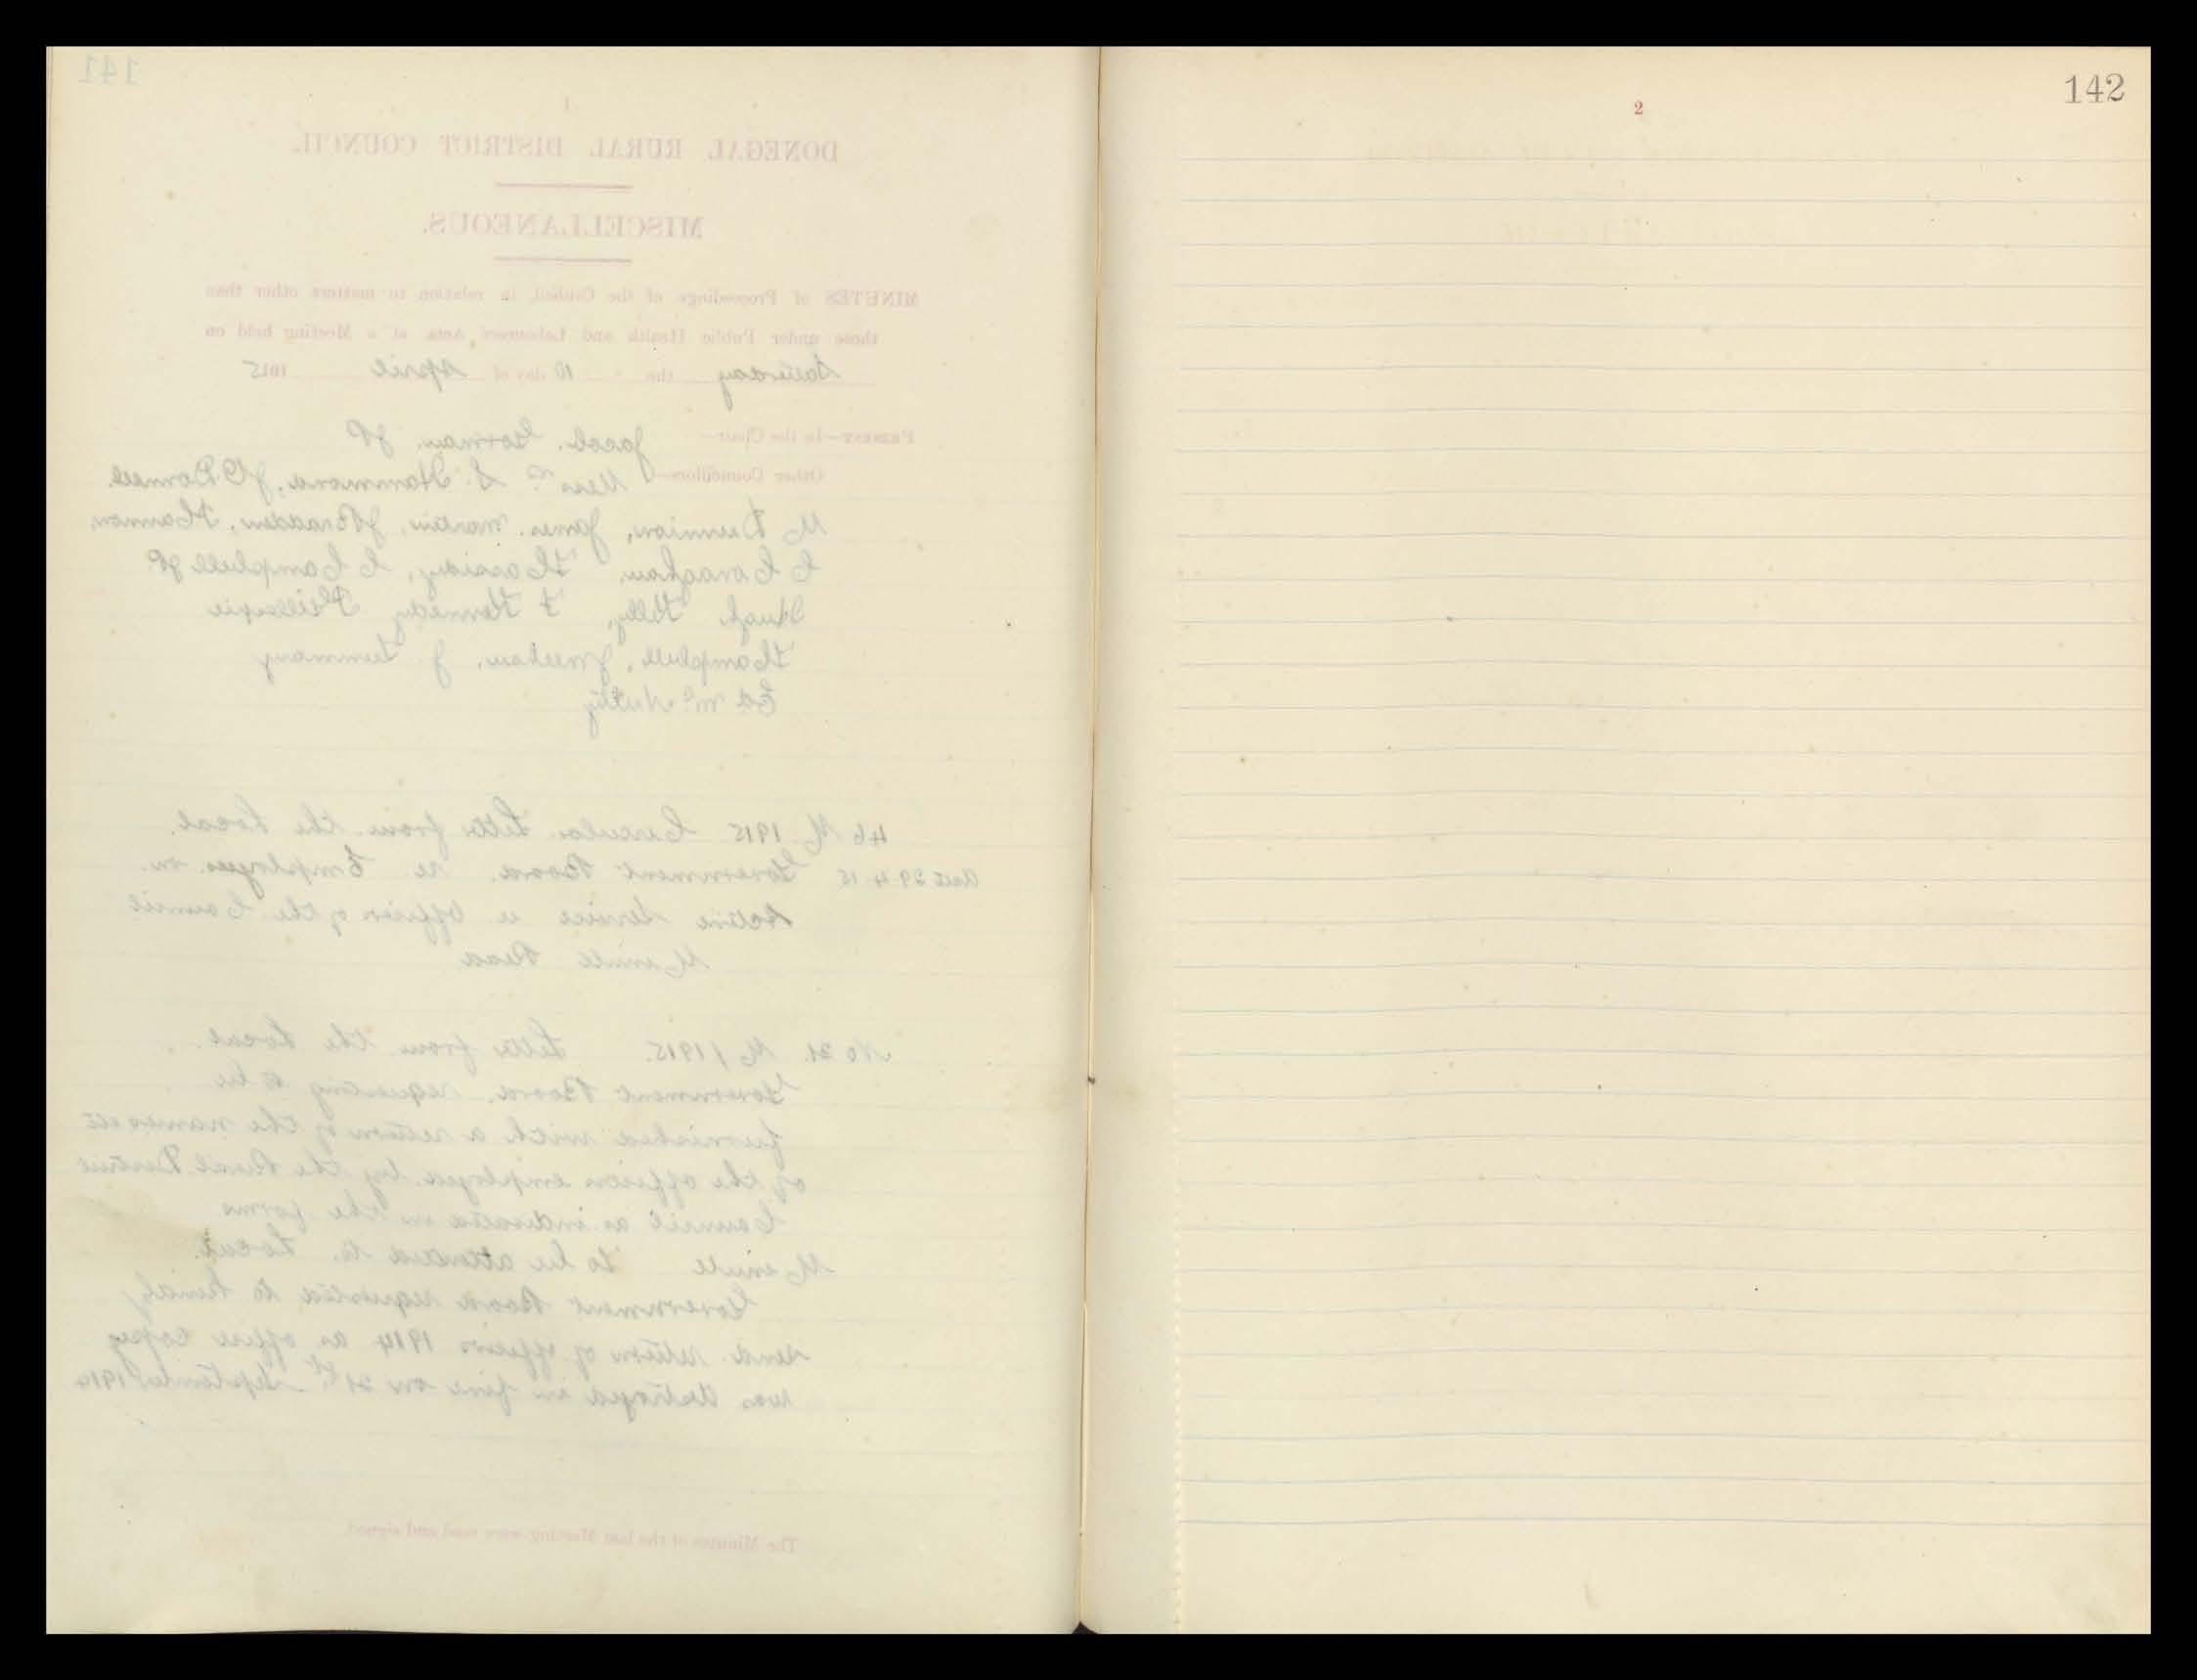 141
1
DONEGAL RURAL DISTRICT COUNCIL.
MISCELLANEOUS.
MINUTES of Proceedings of the Council in relation to matters other than
those under Public Health and Labourers' Acts at a Meeting held on
Saturday the 10 day of April 1915
PRESENT—In the Chair— Jacob. Gorman. JP
Other Councillors— Messrs S. Hammond,
James Martin,
C Campbell JP
Hugh Kelly, F Kennedy
Campbell, J Meehan, J Timmony
Ed McNulty
46 M 1915 Circular Letter from the Local
29.4.15 Government Board. re Employees on
Active Service Officer of the Council
Minute Read
No 21. M/1915. Letter from the Local
Government Board, requesting to be
furnished with a return of the names etc
of the officers employed by the Rural District
Council as indicated in the forms
Minute To be attended to. Local
Government Board requested to kindly
send return of officers 1914 as office copy
was destroyed in fire on 21st September 1914
The Minutes of the last Meeting were read and signed.
142
2